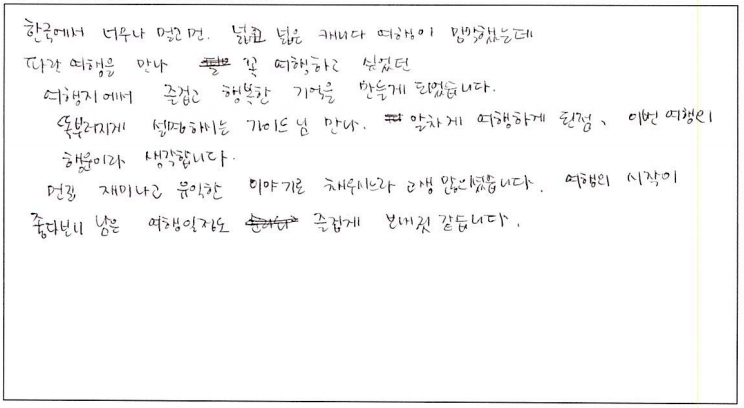 한국에서 너무나 멀고먼. 넓고 넓은 캐나다 여행이 막막했는데
따라 여행을 만나 꼭 여행하고 싶었던
여행지에서 즐겁고 행복한 기억을 만들게 되었습니다.
똑부러지게 설명하시는 가이드님 만나. 알차게 여행하게 된점, 이번 여행의
행운이라 생각합니다.
먼길 재미나고 유익한 이야기로 채우시느라 고생 많으셨습니다. 여행의 시작이
좋다보니 남은 여행일정도 즐겁게 보내릿 같습니다.